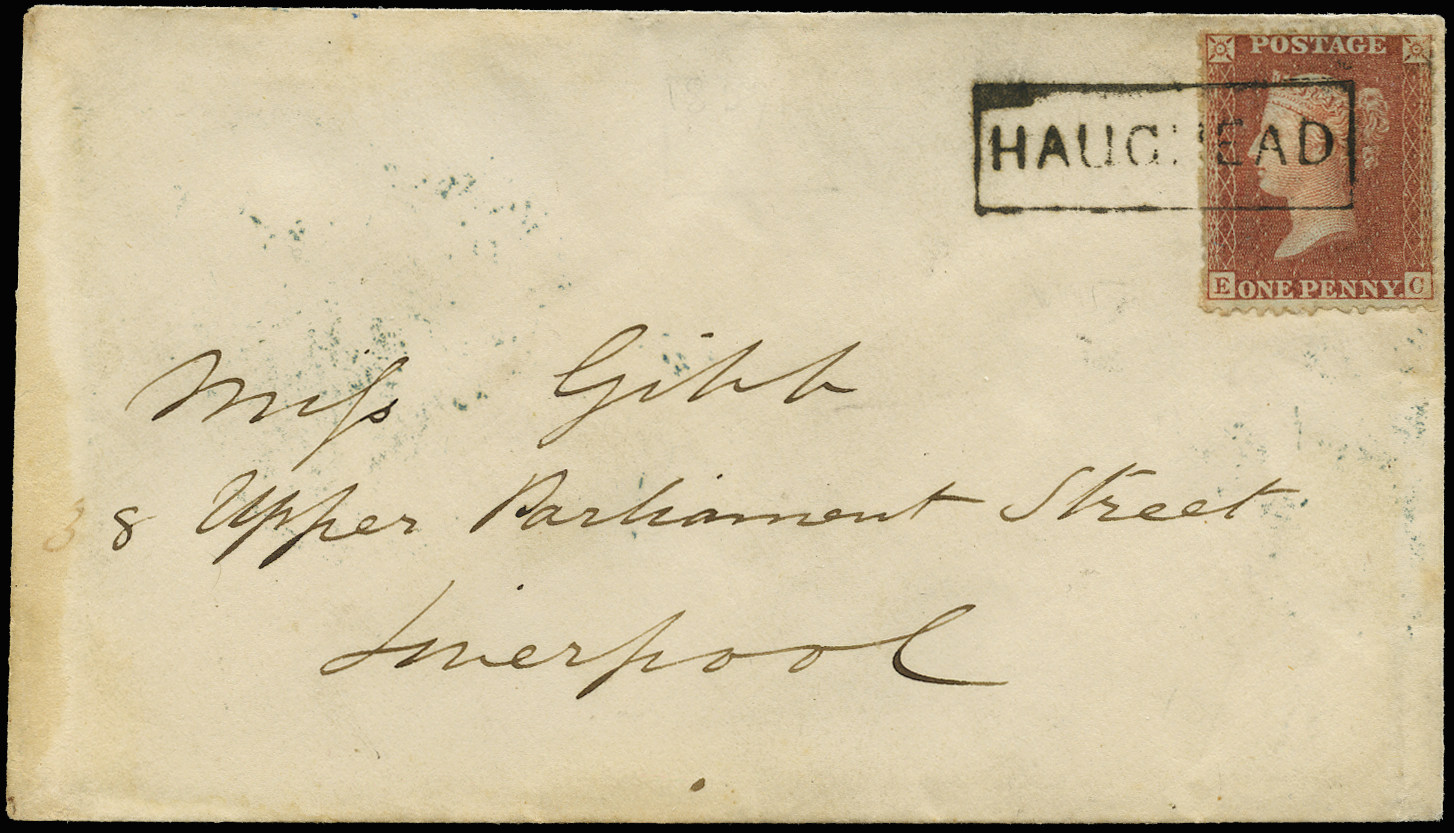 POSTAGE
HAUGHEAD
E ONE PENNY C
Miss Gibb
8 Upper Parliament Street
Liverpool